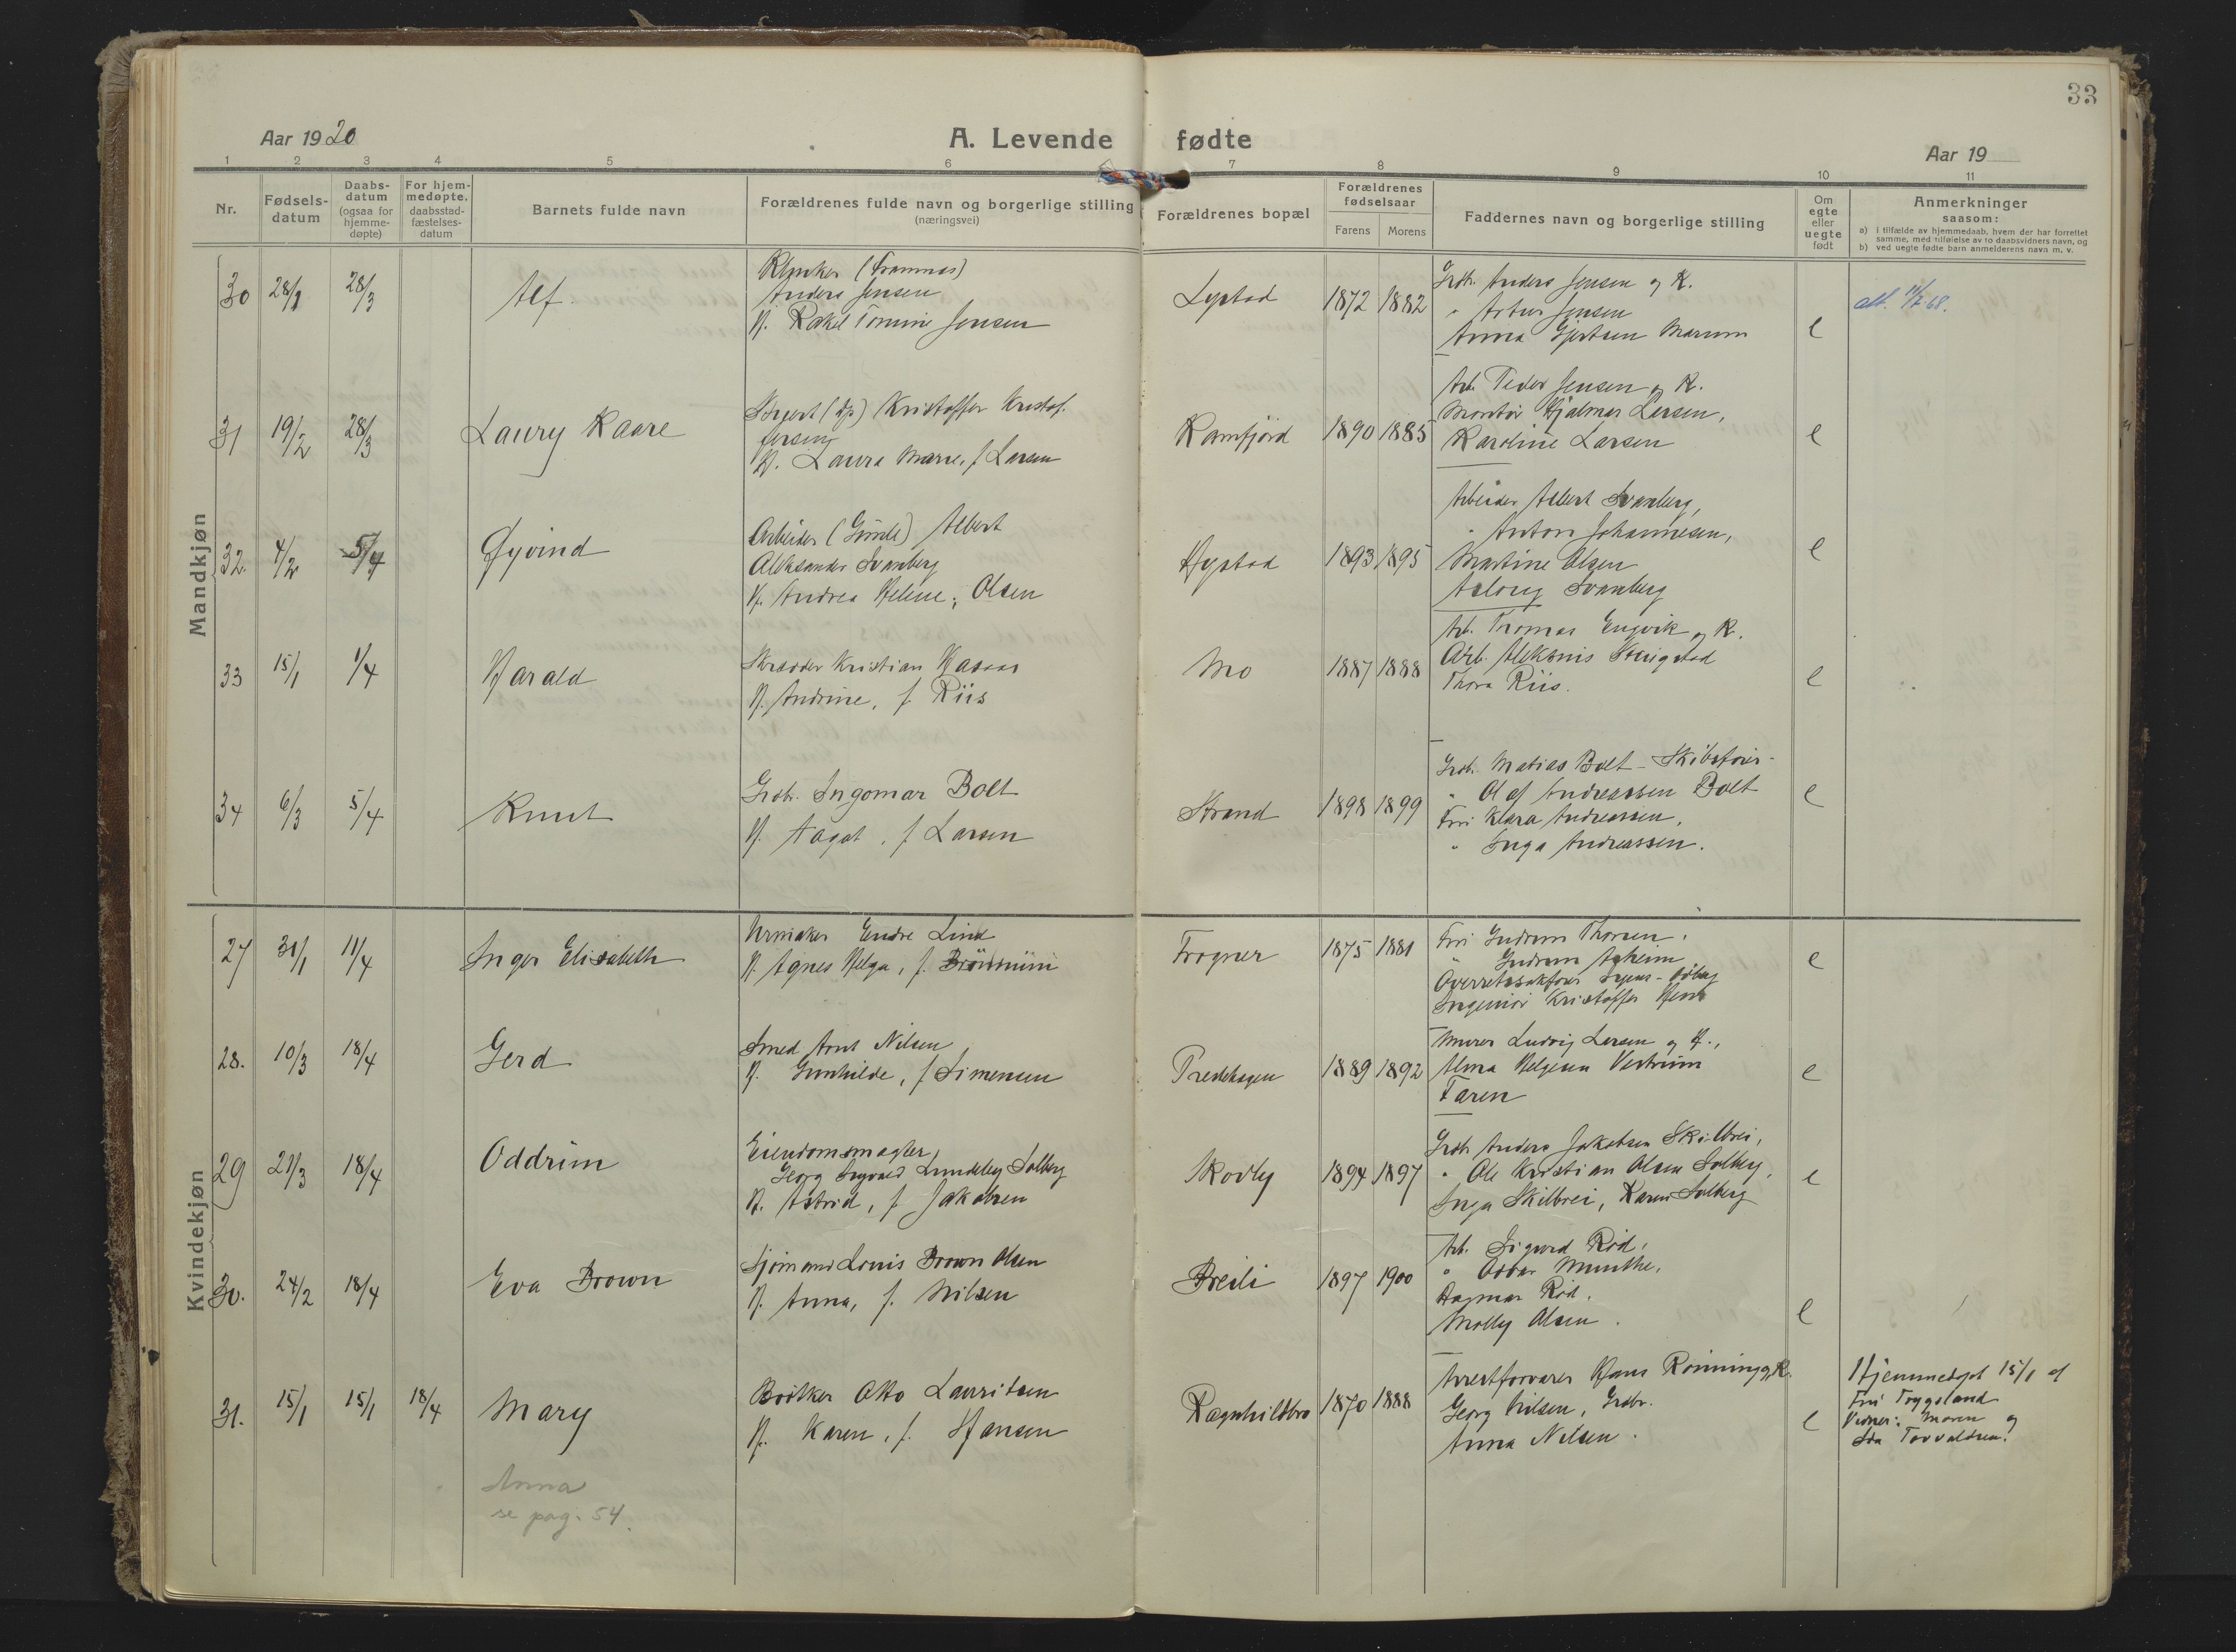 33
Aar 1920
A. Levende fødte
Aar 19
1 2 3 4 5 6 7 8 9 10 11
Nr.
Fødsels-
datum
Daabs-
datum
(ogsaa for
hjemme-
døpte)
For hjem-
medøpte.
daabsstad-
fæstelses-
datum
Barnets fulde navn
Forældrenes fulde navn og borgerlige stilling
(næringsvei)
Forældrenes bopæl
Forældrenes
fødselsaar
Farens Morens
Faddernes navn og borgerlige stilling
Om
egte
eller
uegte
født
Anmerkninger
saasom:
a) i tilfælde av hjemmedaab, hvem der har forrettet
samme, med tilføielse av to daabsvidners navn, og
b) ved uegte fødte barn anmelderens navn m. v.
Mandkjøn
30 28/1 28/3
Alf.
(Framnæs)
Anders Jensen
H. Rakel Tomine Jensen
1872 1882
Grdb. Anders Jensen og K.
" Artur Jensen
Anna Gjertsen Marum
e
att. 11/2 68.
31 19/2 28/3
Laury Kaare
Kristoffer Kristof-
fersen
H. Laura Marie, f. Larsen
Kamfjord
1890 1885
Arb. Peder Jensen og K.
Montør Hjalmar Larsen,
Karoline Larsen
e
32. 4/2 5/4
Øyvind
Arbeider Albert
Aleksander Svanberg
H. Andrea Helene, Olsen
1893 1895
Arbeider Albert Svanberg,
" Anton Johannesen,
Martine Olsen
Aslaug Svanberg
e
33 15/1 1/4
Harald
Skrædder Kristian
H. Andrine, f. Riis
Mo
1887 1888
Arb. Thomas Engvik og K.
Arb.
Thora Riis.
e
34 6/3 5/4
Knut
Grdbr. Ingomar Bolt
H. Aagot, f. Larsen
Strand
1898 1899
Grdb. Matias Bolt - Skibsfører -
" Olaf Andreassen Bolt
Frk. Klara Andreassen,
" Inga Andreassen.
e
Kvindekjøn
27 31/1 11/4
Inger Elisabeth
Urmaker Endre Lind
H. Agnes Helga, f.
Frogner
1875 1881
Frk. Gudrun Thorsen.
" Gudrun
Overretssakfører
Ingeniør Kristoffer
e
28. 10/3 18/4
Gerd
Smed Arnt Nilsen
H. Gunhilde, f. Simensen
Preståsen
1889 1892
Murer Ludvig Larsen og H.,
Alma Helgesen Vestrum
Faren
e
29 21/3 18/4
Oddrun
Eiendomsmægler,
Georg Ingvald Lundeby Solberg
H. Astrid, f. Jakobsen
Skovly
1894 1897
Grdb. Anders Jakobsen Skilbrei,
" Ole Kristian Olsen Solberg,
Inga Skilbrei, Karen Solberg
e
30. 24/2 18/4
Eva Brown
Sjømand Louis Brown Olsen
H. Anna, f. Nilsen
Breili
1897 1900
Arb. Sigurd Rød,
" Oskar Munthe,
Dagmar Rød.
Molly Olsen.
e
31. 15/1 15/1 18/4
Mary
Bødker Otto Lauritsen
H. Karen, f. Hansen
Ragnhildbro
1870 1888
Arrestforvarer Hans Rønning og K.
Georg Nilsen, Grdbr.
Anna Nilsen.
e
Hjemmedøpt 15/1 af
Frk. Tryggeland
Vidner: Moren og
Ida Torvaldsen.
Anna
se pag. 54.